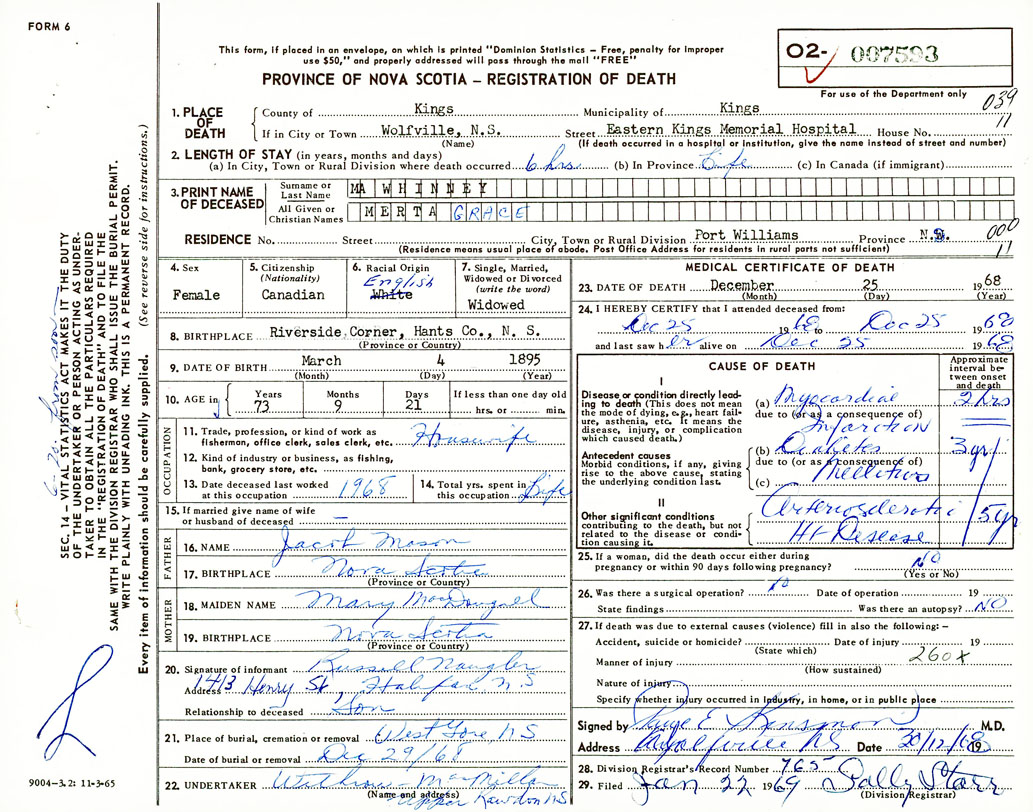 FORM 6
This form, if placed in an envelope, on which is printed "Dominion Statistics – Free, penalty for improper
use $50," and properly addressed will pass through the mail "FREE"
PROVINCE OF NOVA SCOTIA – REGISTRATION OF DEATH
02- 007593
For use of the Department only
039
11
1. PLACE OF DEATH County of Kings Municipality of Kings
If in City or Town Wolfville, N.S. Street Eastern Kings Memorial Hospital House No.
(Name) (If death occurred in a hospital or institution, give the name instead of street and number)
2. LENGTH OF STAY (in years, months and days)
(a) In City, Town or Rural Division where death occurred 6 hrs (b) In Province Life (c) In Canada (if immigrant)
3. PRINT NAME OF DECEASED Surname or Last Name MA WHINNEY
All Given or Christian Names MERTA GRACE
RESIDENCE No. Street City, Town or Rural Division Port Williams Province N.S. 000
(Residence means usual place of abode. Post Office Address for residents in rural parts not sufficient) 11
4. Sex Female
5. Citizenship (Nationality) Canadian
6. Racial Origin English White
7. Single, Married, Widowed or Divorced (write the word) Widowed
8. BIRTHPLACE Riverside Corner, Hants Co., N. S.
(Province or Country)
9. DATE OF BIRTH March 4 1895
(Month) (Day) (Year)
10. AGE in Years 73 Months 9 Days 21 If less than one day old hrs. or min.
OCCUPATION
11. Trade, profession, or kind of work as fisherman, office clerk, sales clerk, etc. Housewife
12. Kind of industry or business, as fishing, bank, grocery store, etc.
13. Date deceased last worked at this occupation 1968
14. Total yrs. spent in this occupation Life
15. If married give name of wife or husband of deceased —
FATHER
16. NAME Jacob Mason
17. BIRTHPLACE Nova Scotia
(Province or Country)
MOTHER
18. MAIDEN NAME Mary MacDougall
19. BIRTHPLACE Nova Scotia
(Province or Country)
20. Signature of informant Russell Naugler
Address 1413 Henry St, Halifax N S
Relationship to deceased Son
21. Place of burial, cremation or removal West Gore N S
Date of burial or removal Dec 29/68
22. UNDERTAKER MacMillan
(Name and address) Upper Rawdon N S
MEDICAL CERTIFICATE OF DEATH
23. DATE OF DEATH December 25 1968
(Month) (Day) (Year)
24. I HEREBY CERTIFY that I attended deceased from:
Dec 25 1968 to Dec 25 1968
and last saw her alive on Dec 25 1968
CAUSE OF DEATH
Approximate interval between onset and death
I
Disease or condition directly leading to death (This does not mean the mode of dying, e.g., heart failure, asthenia, etc. It means the disease, injury, or complication which caused death.)
(a) Myocardial 2 hrs
due to (or as a consequence of)
Infarction
Antecedent causes
Morbid conditions, if any, giving rise to the above cause, stating the underlying condition last.
(b) Diabetes 3 yrs
due to (or as a consequence of)
(c) Mellitus
II
Other significant conditions contributing to the death, but not related to the disease or condition causing it.
Arteriosclerotic 15 yr
Ht Disease
25. If a woman, did the death occur either during pregnancy or within 90 days following pregnancy? No
(Yes or No)
26. Was there a surgical operation? No Date of operation 19
State findings Was there an autopsy? NO
27. If death was due to external causes (violence) fill in also the following: –
Accident, suicide or homicide? Date of injury 19
(State which) 260X
Manner of injury
(How sustained)
Nature of injury
Specify whether injury occurred in industry, in home, or in public place
Signed by M.D.
Address Date 30/12/68 19
28. Division Registrar's Record Number 765
29. Filed Jan 22 1969 Sally Starr
(Division Registrar)
SEC. 14 – VITAL STATISTICS ACT MAKES IT THE DUTY
OF THE UNDERTAKER OR PERSON ACTING AS UNDER-
TAKER TO OBTAIN ALL THE PARTICULARS REQUIRED
IN THE "REGISTRATION OF DEATH" AND TO FILE THE
SAME WITH THE DIVISION REGISTRAR WHO SHALL ISSUE THE BURIAL PERMIT.
WRITE PLAINLY WITH UNFADING INK. THIS IS A PERMANENT RECORD.
Every item of information should be carefully supplied. (See reverse side for instructions.)
9004-3.2: 11-3-65